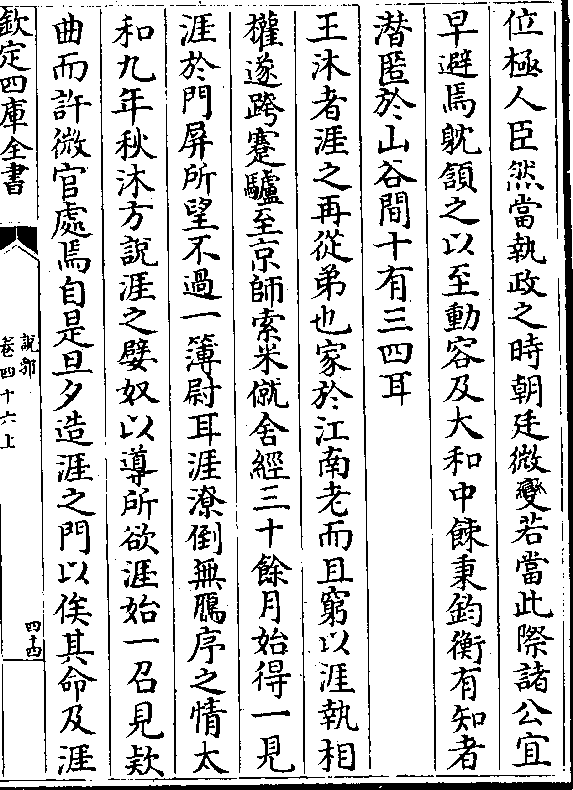 位極人臣然當執政之時朝廷微變若當此際諸公宜
早避焉躭頷之以至動容及大和中餗秉鈞衡有知者
潛匿於山谷間十有三四耳
王沐者涯之再從弟也家於江南老而且窮以涯執相
權遂跨蹇驢至京師索米僦舍經三十餘月始得一見
涯於門屏所望不過一簿尉耳涯潦倒無鴈序之情太
和九年秋沐方說涯之嬖奴以導所欲涯始一召見欵
曲而許微官處焉自是旦夕造涯之門以俟其命及涯
欽定四庫全書
說郛
卷四十六上
四十四